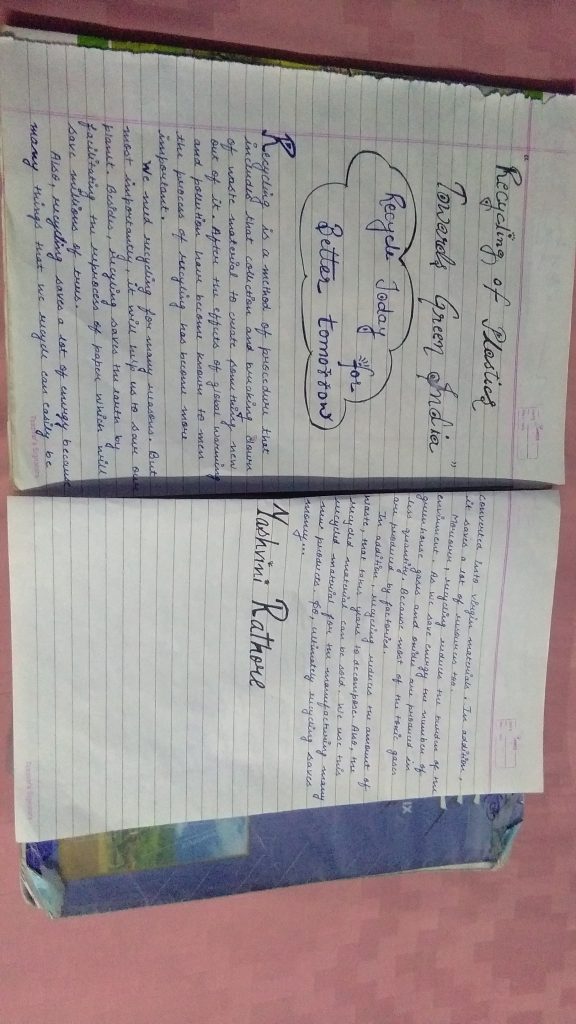 "Recycling of Plastics
Towards Green India"
Recycle Today
for
Better tomorrow
Recycling is a method of procedure that
includes that collection and breaking down
of waste material to create something new
out of it. After the effects of global warming
and pollution have become known to men
the process of recycling has become more
important.
We need recycling for many reasons. But
most importantly, it will help us to save our
planet. Besides, recycling saves the earth by
facilitating the reprocess of paper which will
save millions of trees.
Also, recycling saves a lot of energy because
many things that we recycle can easily be
Teacher's Signature
converted into virgin materials. In addition,
it saves a lot of resources too.
Moreover, recycling reduces the burden of the
enviroment. As we save energy the number of
greenhouse gases and oxides are produced in
less quantity. Because most of the toxic gases
are produced by factories.
In addition, recycling reduces the amount of
waste, that takes years to decompose. Also, the
recycled material can be sold. We use this
recycled material for the manufacturing many
new products. So, ultimately recycling saves
money...
Yashvini Rathore
Teacher's Signature
IX